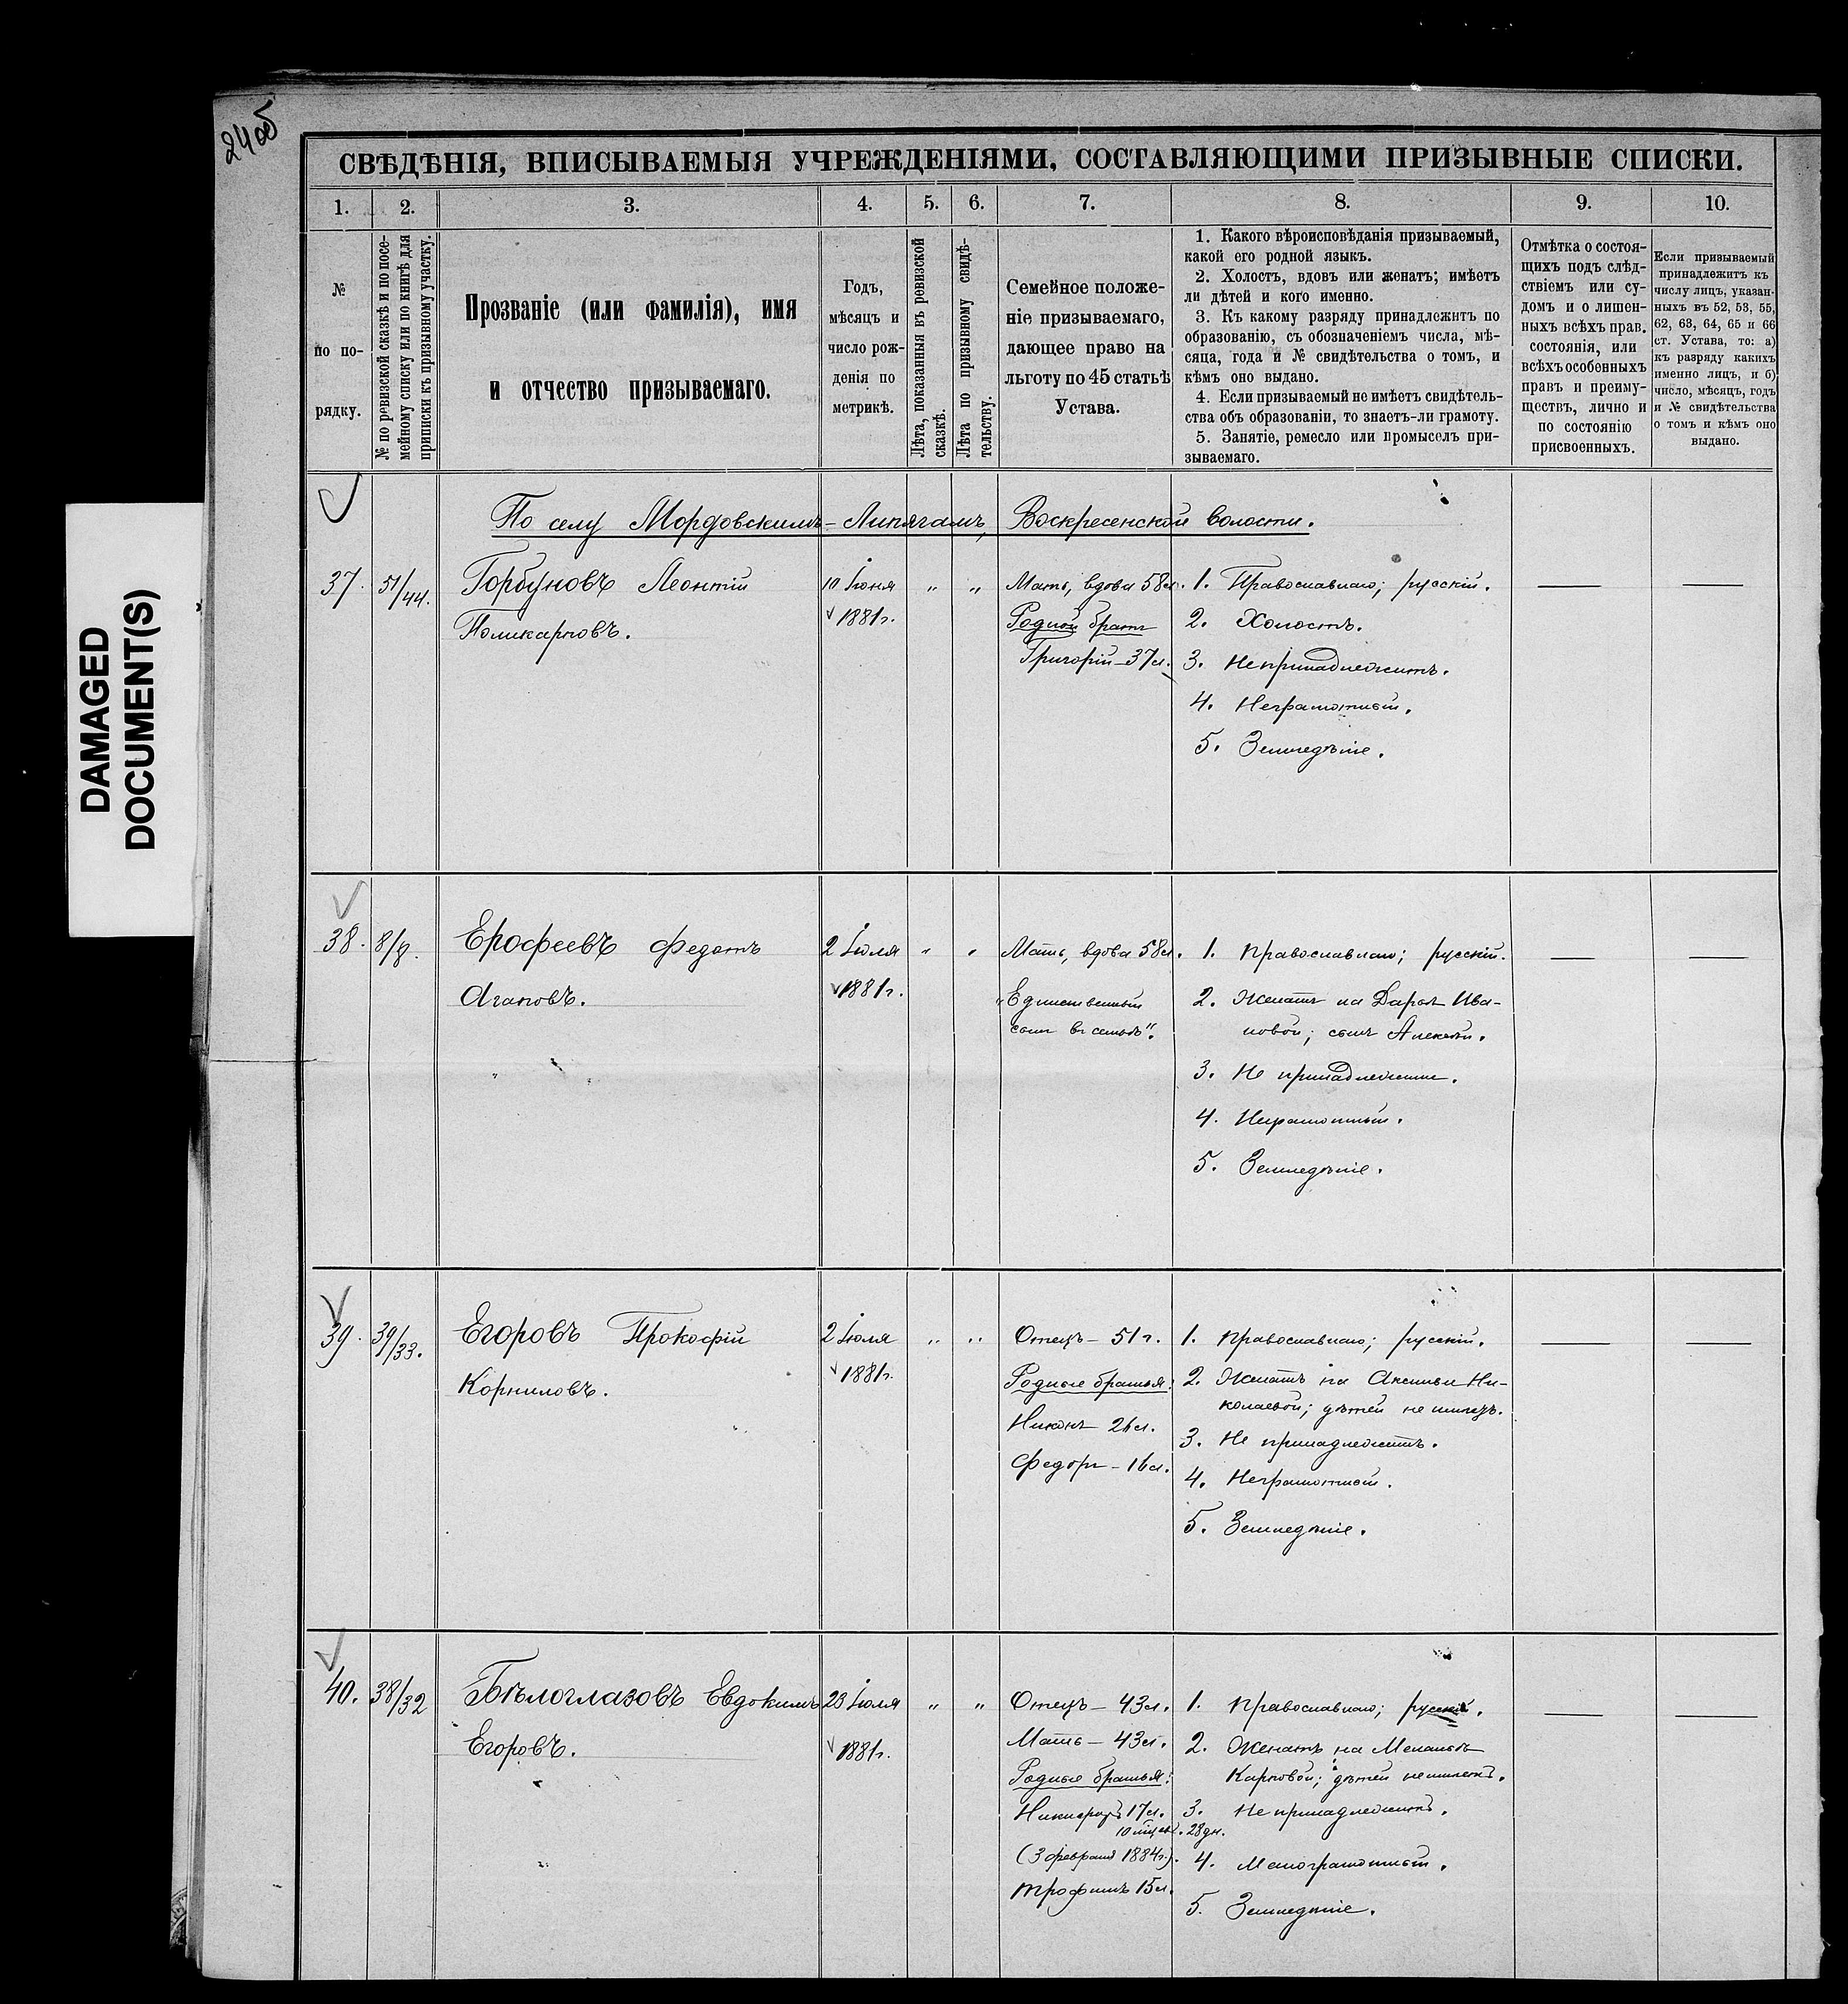 24об
DAMAGED
DOCUMENT(S)
СВѢДѢНІЯ, ВПИСЫВАЕМЫЯ УЧРЕЖДЕНІЯМИ, СОСТАВЛЯЮЩИМИ ПРИЗЫВНЫЕ СПИСКИ.
1. 2. 3. 4. 5. 6. 7. 8. 9. 10.
№
по по-
рядку.
№ по ревизской сказкѣ и по посе-
мейному списку или по книгѣ для
приписки къ призывному участку.
Прозваніе (или фамилія), имя
и отчество призываемаго.
Годъ,
мѣсяцъ и
число рож-
денія по
метрикѣ.
Лѣта, показанныя въ ревизской
сказкѣ.
Лѣта по призывному свидѣ-
тельству.
Семейное положе-
ніе призываемаго,
дающее право на
льготу по 45 статьѣ
Устава.
1. Какого вѣроисповѣданія призываемый,
какой его родной языкъ.
2. Холостъ, вдовъ или женатъ; имѣетъ
ли дѣтей и кого именно.
3. Къ какому разряду принадлежитъ по
образованію, съ обозначеніемъ числа, мѣ-
сяца, года и № свидѣтельства о томъ, и
кѣмъ оно выдано.
4. Если призываемый не имѣетъ свидѣтель-
ства объ образованіи, то знаетъ-ли грамоту.
5. Занятіе, ремесло или промыселъ при-
зываемаго.
Отмѣтка о состоя-
щихъ подъ слѣд-
ствіемъ или су-
домъ и о лишен-
ныхъ всѣхъ прав.
состоянія, или
всѣхъ особенныхъ
правъ и преиму-
ществъ, лично и
по состоянію
присвоенныхъ.
Если призываемый
принадлежитъ къ
числу лицъ, указан-
ныхъ въ 52, 53, 55,
62, 63, 64, 65 и 66
ст. Устава, то: а)
къ разряду какихъ
именно лицъ, и б)
число, мѣсяцъ, годъ
и № свидѣтельства
о томъ и кѣмъ оно
выдано.
По селу Мордовскимъ-Липягамъ, Воскресенской волости.
37. 51/44. Горбуновъ Леонтій
Поликарповъ.
10 Іюня
1881г.
" "
Мать, вдова 58л.
Родной братъ
Григорій-37л.
1. Православнаго; русскій.
2. Холостъ.
3. Не принадлежитъ.
4. Неграмотный.
5. Земледѣліе.
38. 8/8. Ерофеевъ Федотъ
Агаповъ.
2 Іюля
1881г.
" "
Мать, вдова 58л.
"Единственный
сынъ въ семьѣ".
1. Православнаго; русскій.
2. Женатъ на Дарьѣ Ива-
новой; сынъ Алексѣй.
3. Не принадлежитъ.
4. Неграмотный.
5. Земледѣліе.
39. 39/33. Егоровъ Прокофій
Корниловъ.
2 Іюля
1881г.
" "
Отецъ - 51 г.
Родные братья:
Никонъ - 26л.
Федоръ - 16л.
1. Православнаго; русскій.
2. Женатъ на Аксиньи Ни-
колаевой; дѣтей не имѣетъ.
3. Не принадлежитъ.
4. Неграмотный.
5. Земледѣліе.
40. 38/32 Бѣлоглазовъ Евдокимъ
Егоровъ.
23 Іюля
1881г.
" "
Отецъ - 43л.
Мать - 43л.
Родные братья:
Никифоръ 17л.
10 мѣсяц. 28 дн.
(3 февраля 1884г.).
Трофимъ 15л.
1. Православнаго; русскій.
2. Женатъ на Меланьѣ
Карповой; дѣтей не имѣетъ.
3. Не принадлежитъ.
4. Малограмотный.
5. Земледѣліе.